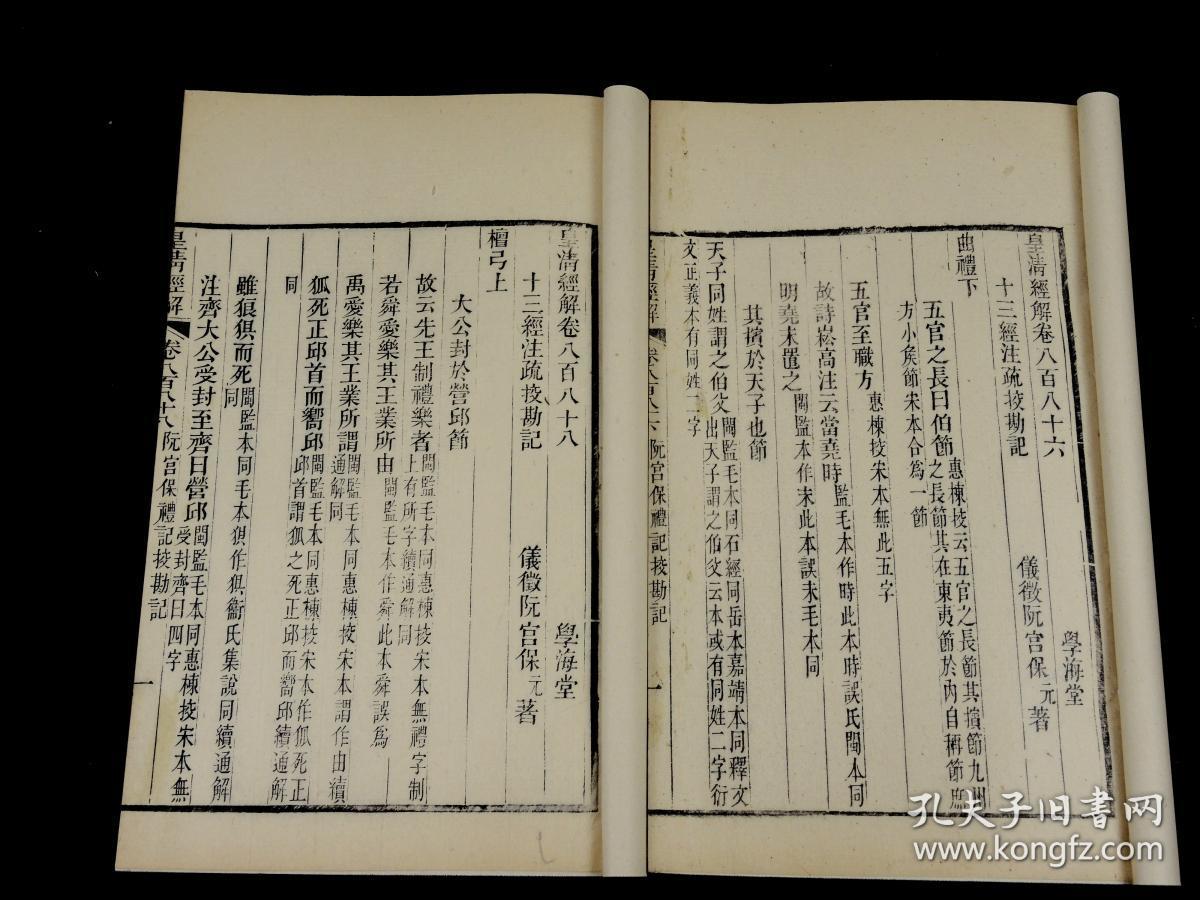 皇清經解卷八百八十六
學海堂
十三經注疏挍勘記
儀徵阮宮保元著
曲禮下
五官之長曰伯節
惠棟挍云五官之長節其擯節九州
之長節其在東夷節於內自稱節庶
方小矦節宋本合爲一節
五官至職方
惠棟挍宋本無此五字
故詩崧高注云當堯時
監毛本作時此本時誤氏閩本同
明堯末置之
閩監本作末此本誤未毛本同
其擯於天子也節
天子同姓謂之伯父
閩監毛本同石經同岳本嘉靖本同釋文
出天子謂之伯父云本或有同姓二字衍
文正義本有同姓二字
皇清經解
卷八百八十六
阮宮保禮記挍勘記
一
皇清經解卷八百八十八
學海堂
十三經注疏挍勘記
儀徵阮宮保元著
檀弓上
大公封於營邱節
故云先王制禮樂者
閩監毛本同惠棟挍宋本無禮字制
上有所字續通解同
若舜愛樂其王業所由
閩監毛本作舜此本舜誤爲
禹愛樂其王業所謂
閩監毛本同惠棟挍宋本謂作由續
通解同
狐死正邱首而嚮邱
閩監毛本同惠棟挍宋本作狐死正
邱首謂狐之死正邱而嚮邱續通解
同
雖狼狽而死
閩監本同毛本狽作狽衞氏集說同續通解
同
注齊大公受封至齊曰營邱
閩監毛本同惠棟挍宋本無
受封齊曰四字
皇清經解
卷八百八十八
阮宮保禮記挍勘記
一
孔夫子旧书网
www.kongfz.com